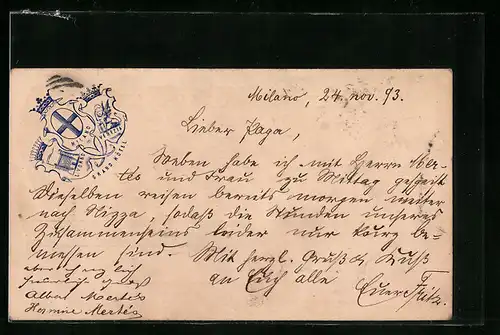 Milano, 24. nov. 93.
Lieber Papa,
Soeben habe ich mit Herrn Mer-
tés und Frau zu Mittag gespeist
Dieselben reisen bereits morgen weiter
nach Nizza, sodaß die Stunden unseres
Zusammenseins leider nur kurz be-
messen sind. Mit herzl. Gruß & Kuß
an Euch alle Euer Fritz.
Albert Mertés
Hermine Mertés
MILANO
GRAND HOTEL